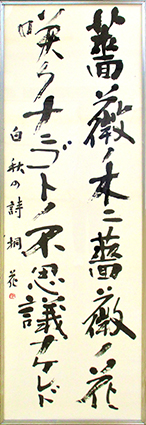 薔薇ノ木ニ薔薇ノ花
咲クナニゴトノ不思議ナケレド
白秋の詩 桐花